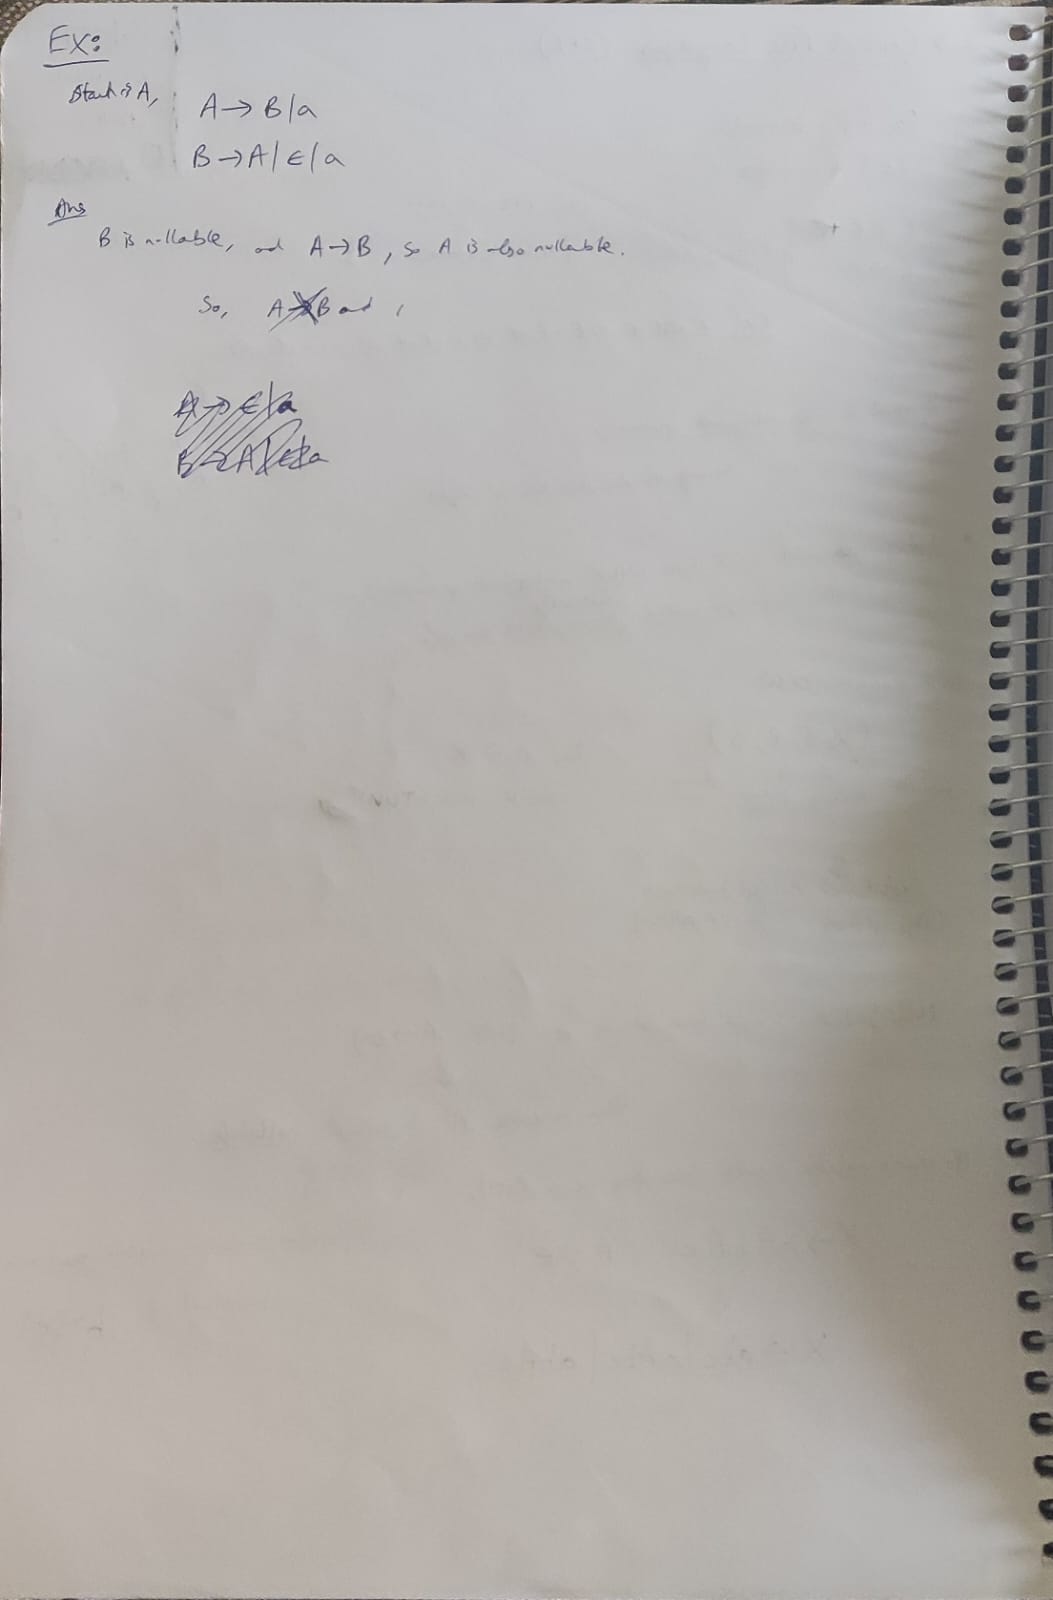 Ex:
Start is A,
A → B | a
B → A | ∈ | a
Ans
B is nullable, and A → B, so A is also nullable.
So, A → B and
A → ∈ | a
B → A | ∈ | a